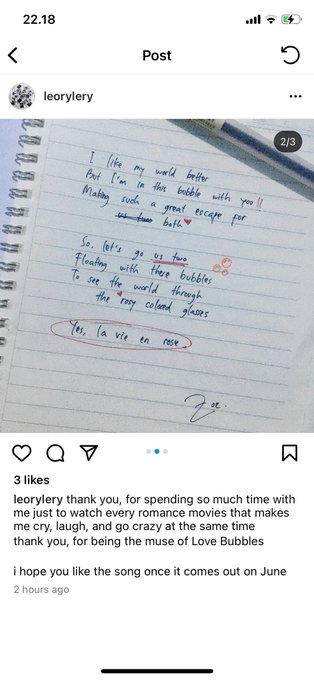 22.18
Post
leorylery
2/3
I like my world better
But I'm in this bubble with you!!
Making such a great escape for
us two both
So, let's go us two
Floating with these bubbles
To see the world through
the rosy colored glasses
Yes, la vie en rose
Zoe.
3 likes
leorylery thank you, for spending so much time with
me just to watch every romance movies that makes
me cry, laugh, and go crazy at the same time
thank you, for being the muse of Love Bubbles
i hope you like the song once it comes out on June
2 hours ago